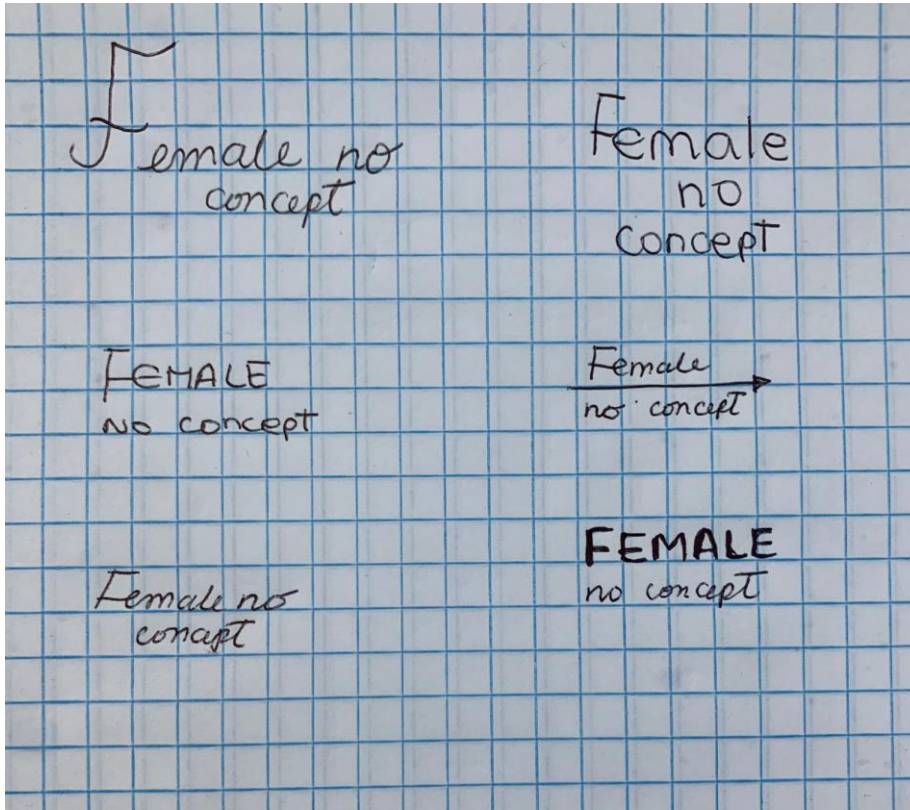 Female no
concept
Female
no
concept
FEMALE
no concept
Female
no concept
Female no
concept
FEMALE
no concept